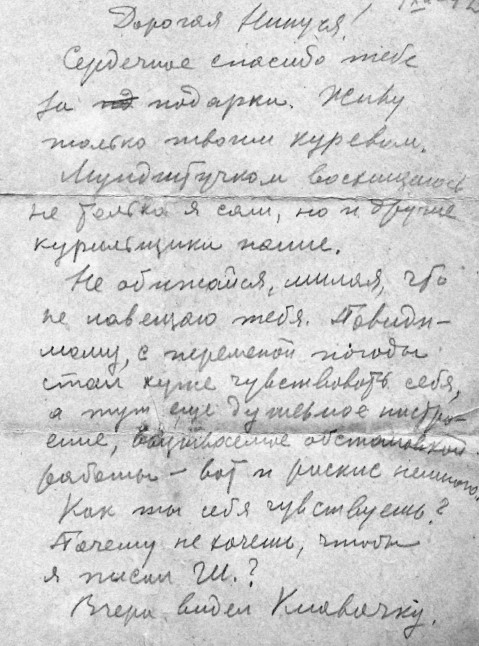 Дорогая Нинуся!
Сердечное спасибо тебе
за подарки. Живу
только твоим куревом.
Мундштучком восхищаюсь
не только я сам, но и другие
курильщики наши.
Не обижайся, милая, что
не навещаю тебя. Повиди-
мому, с переменой погоды
стал хуже чувствовать себя,
а тут еще душевное настро-
ение, обстановкой
работы – вот и раскис немного.
Как ты себя чувствуешь?
Почему не хочешь, чтобы
я писал Ш.?
Вчера видел Клавочку.